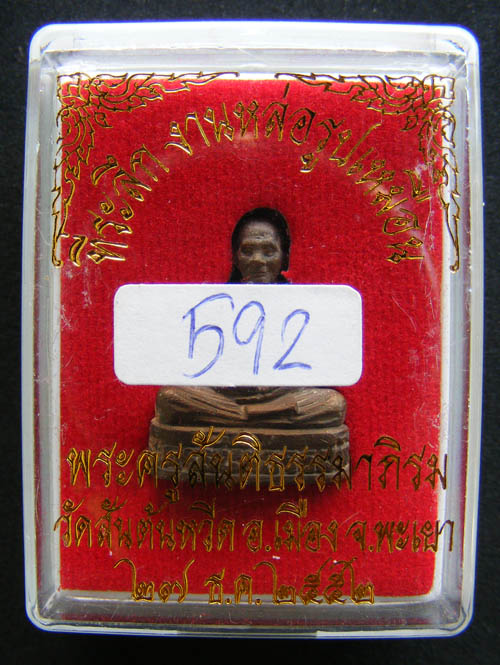 ที่ระลึก งานหล่อรูปเหมือน
592
พระครูสันติธรรมาภิรม
วัดสันต้นหวีด อ.เมือง จ.พะเยา
๒๗ ธ.ค. ๒๕๕๒